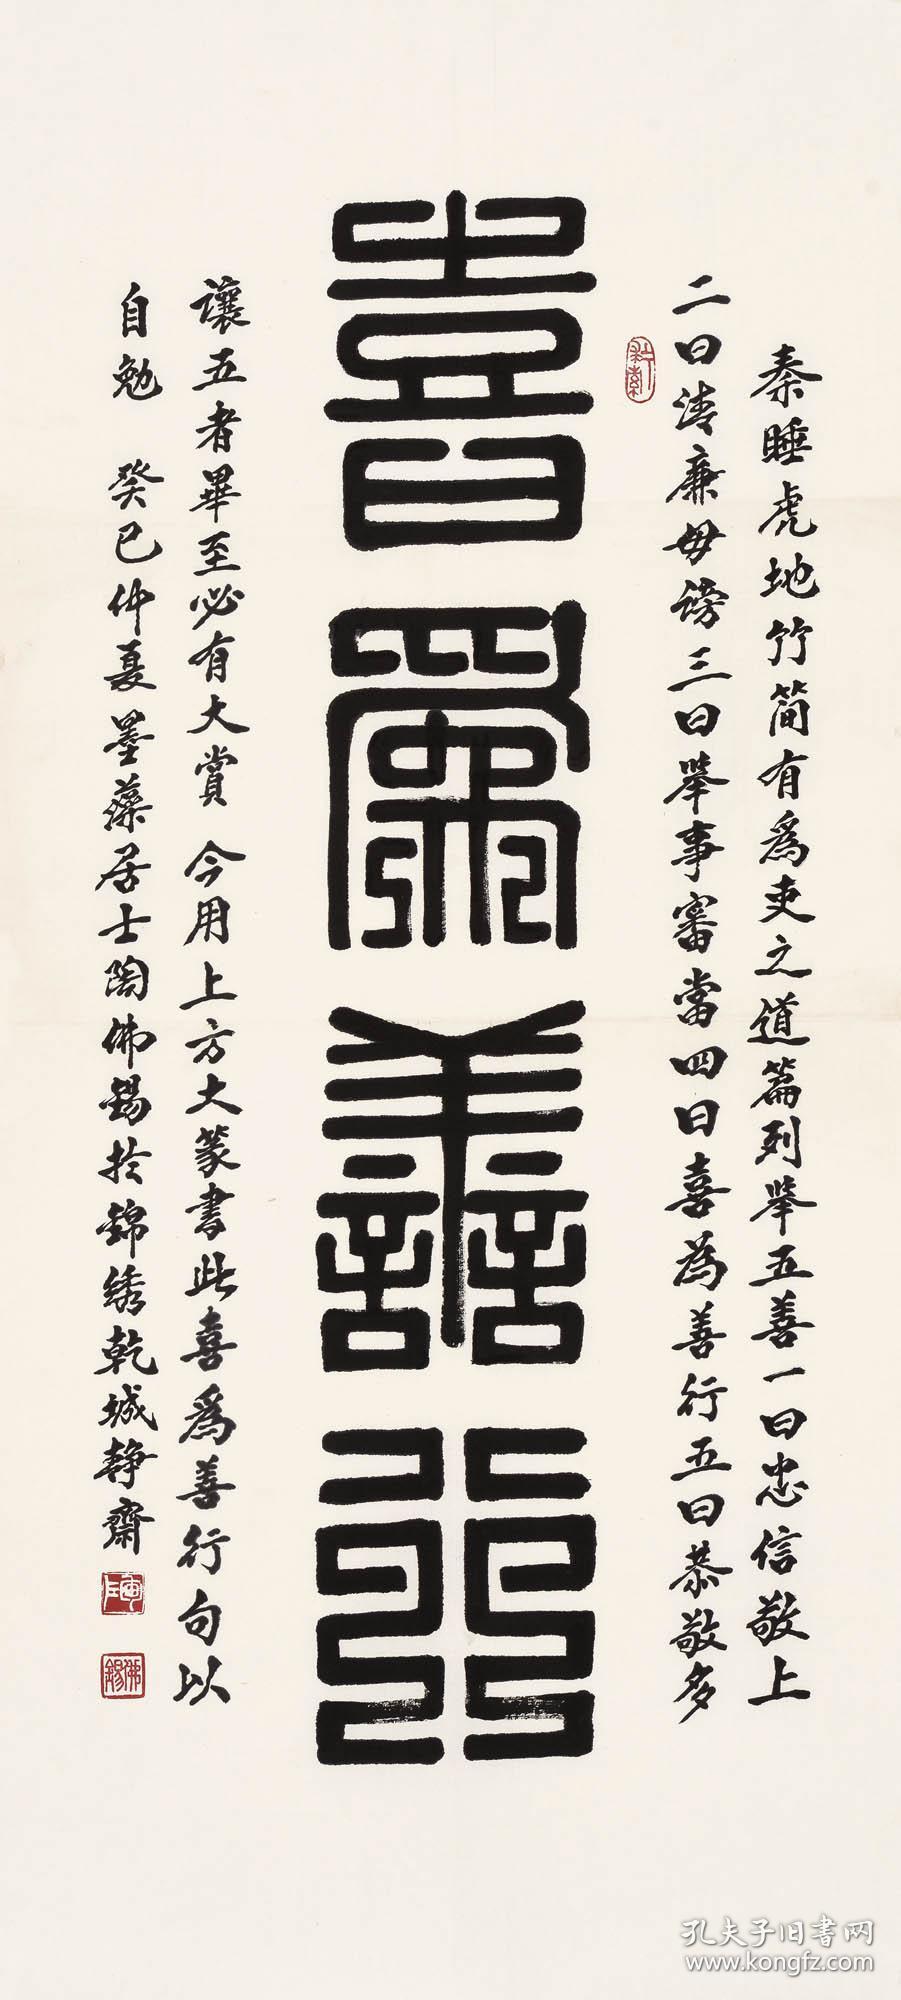 秦睡虎地竹简有為吏之道篇列举五善一曰忠信敬上
二曰清廉毋谤三曰举事審當四曰喜為善行五曰恭敬多
喜爲善行
讓五者畢至必有大賞 今用上方大篆書此喜爲善行句以
自勉 癸巳仲夏墨藻居士陶佛錫於錦绣乾城静齋
陶
佛錫
孔夫子旧書网
www.kongfz.com